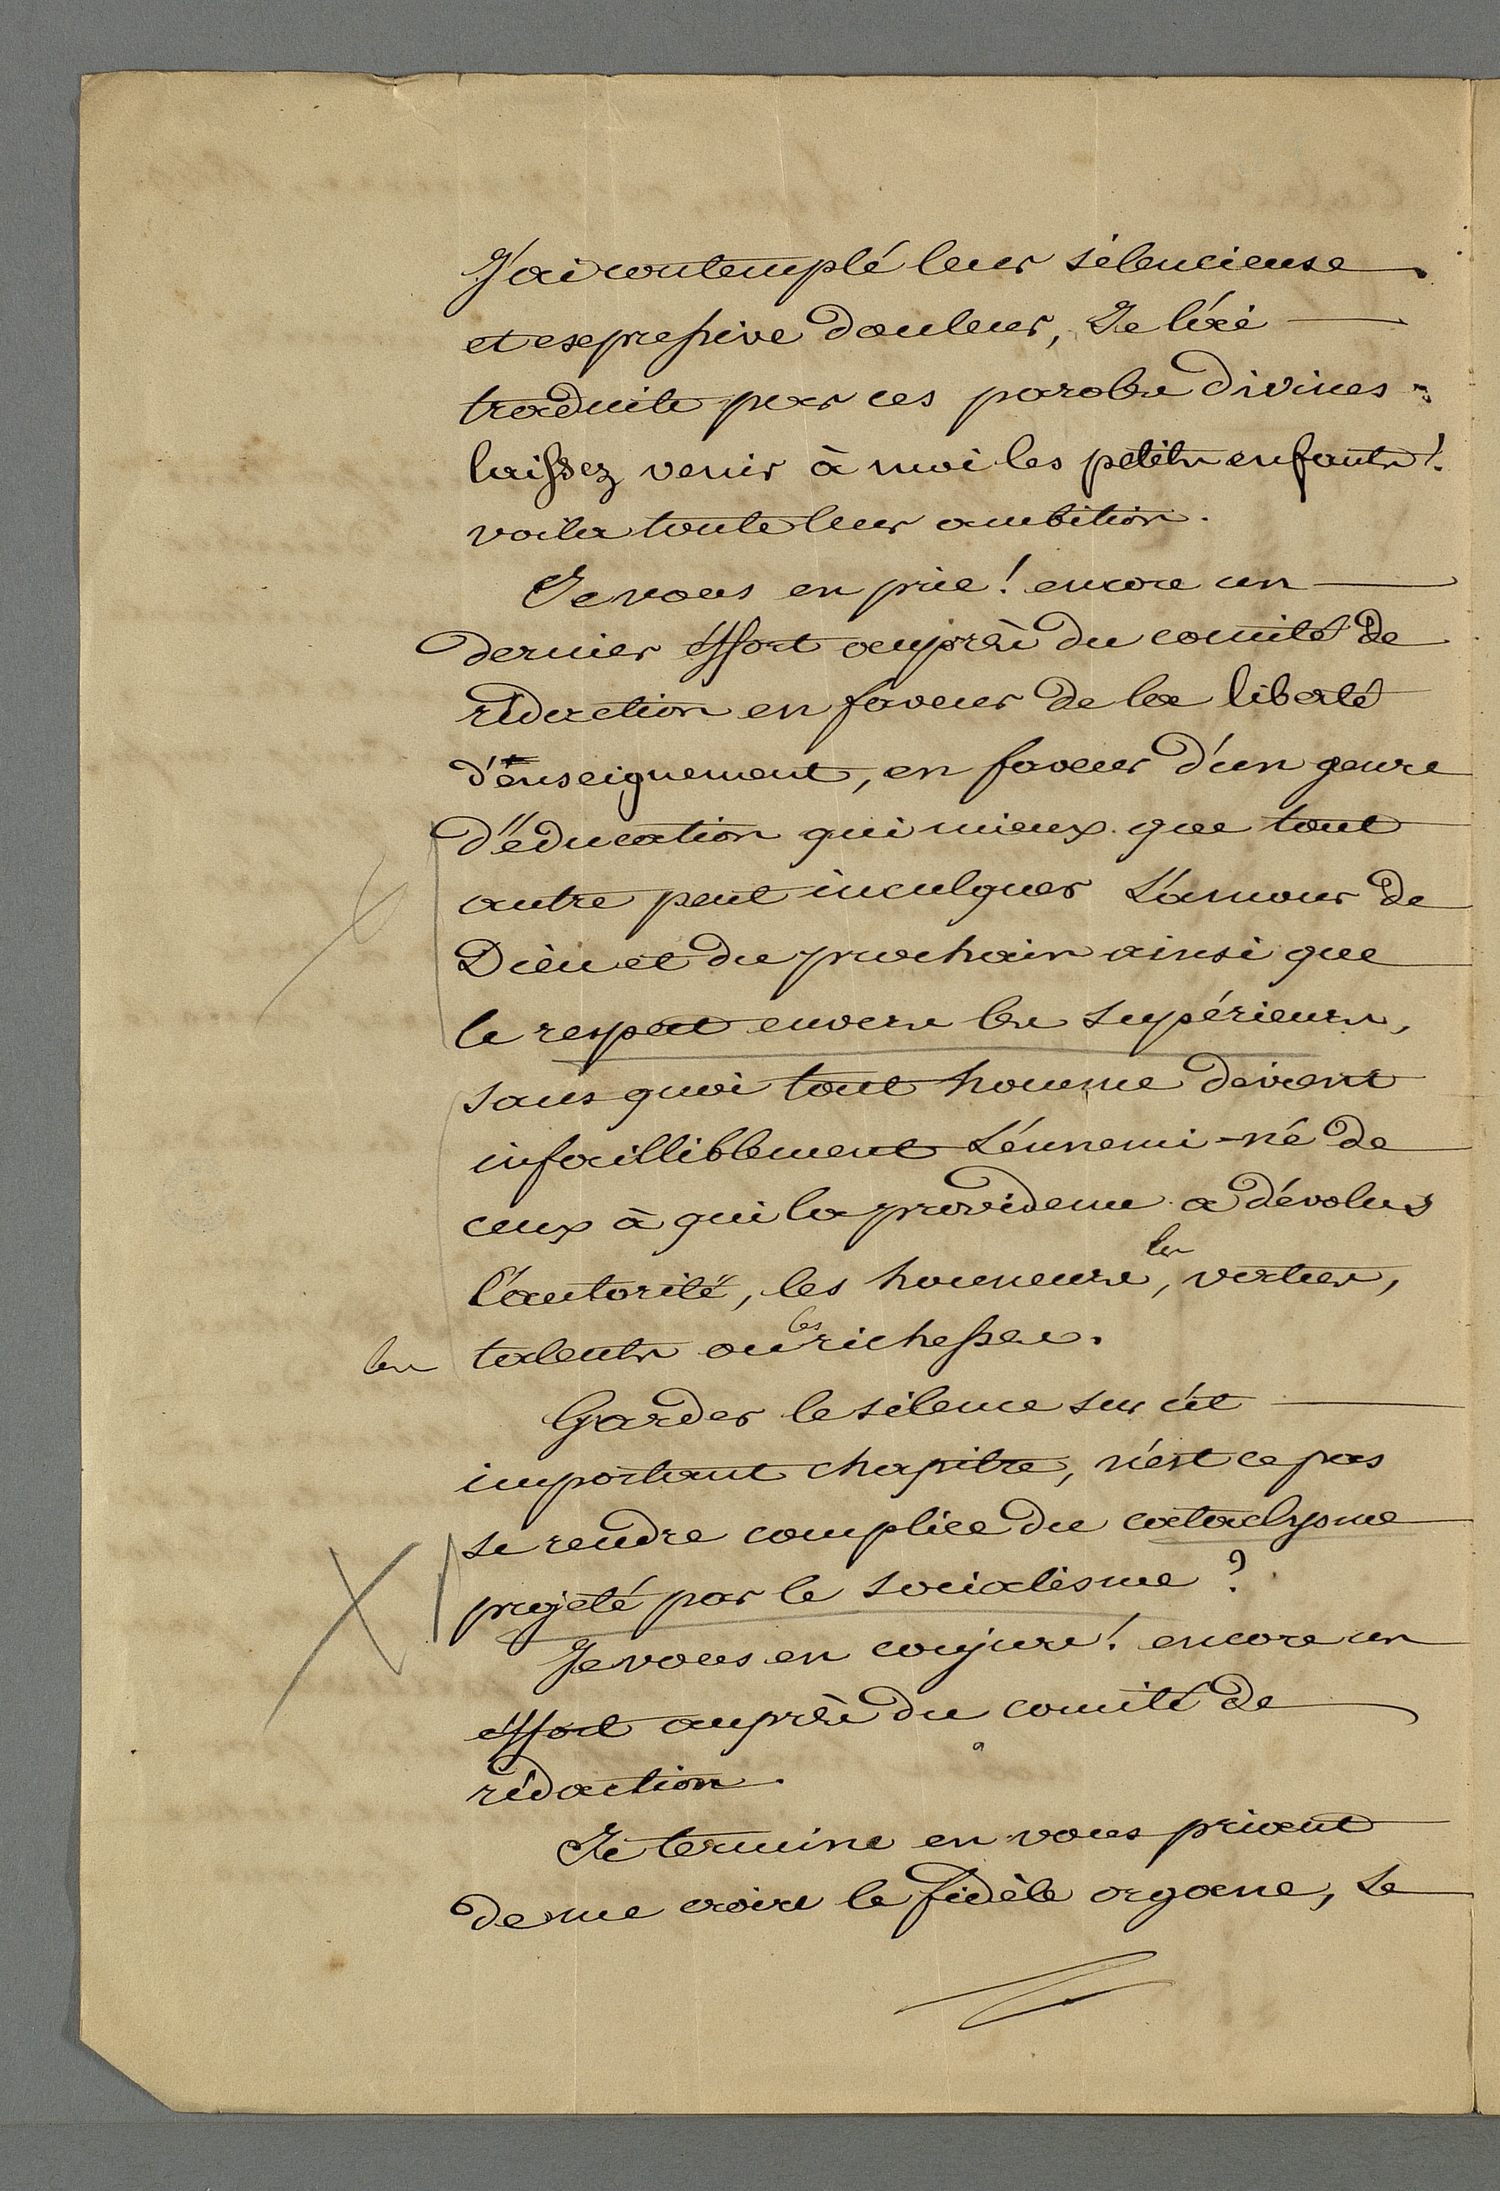 J'ai contemplé leur silencieuse
et expressive douleur, Je l'ai
traduite par ces paroles divines :
laissez venir à moi les petits enfants !
voila toute leur ambition.
Je vous en prie ! encore un
dernier éffort auprès du comité de
rédaction en faveur de la liberté
d'enseignement, en faveur d'un genre
d'éducation qui mieux que tout
autre peut inculquer L'amour de
Dieu et du prochain ainsi que
le respect envers les supérieurs,
sans quoi tout homme devient
infailliblement L'énnemi-né de
ceux à qui la providence a dévolus
l'autorité, les honneurs, les vertus,
les talents ou les richesses.
Garder le silence sur cét
important chapitre, n'est ce pas
se rendre complice du cataclysme
projeté par le socialisme ?
Je vous en conjure ! encore un
éffort auprès du comité de
rédaction.
Je termine en vous priant
de me croire le fidèle organe, Le